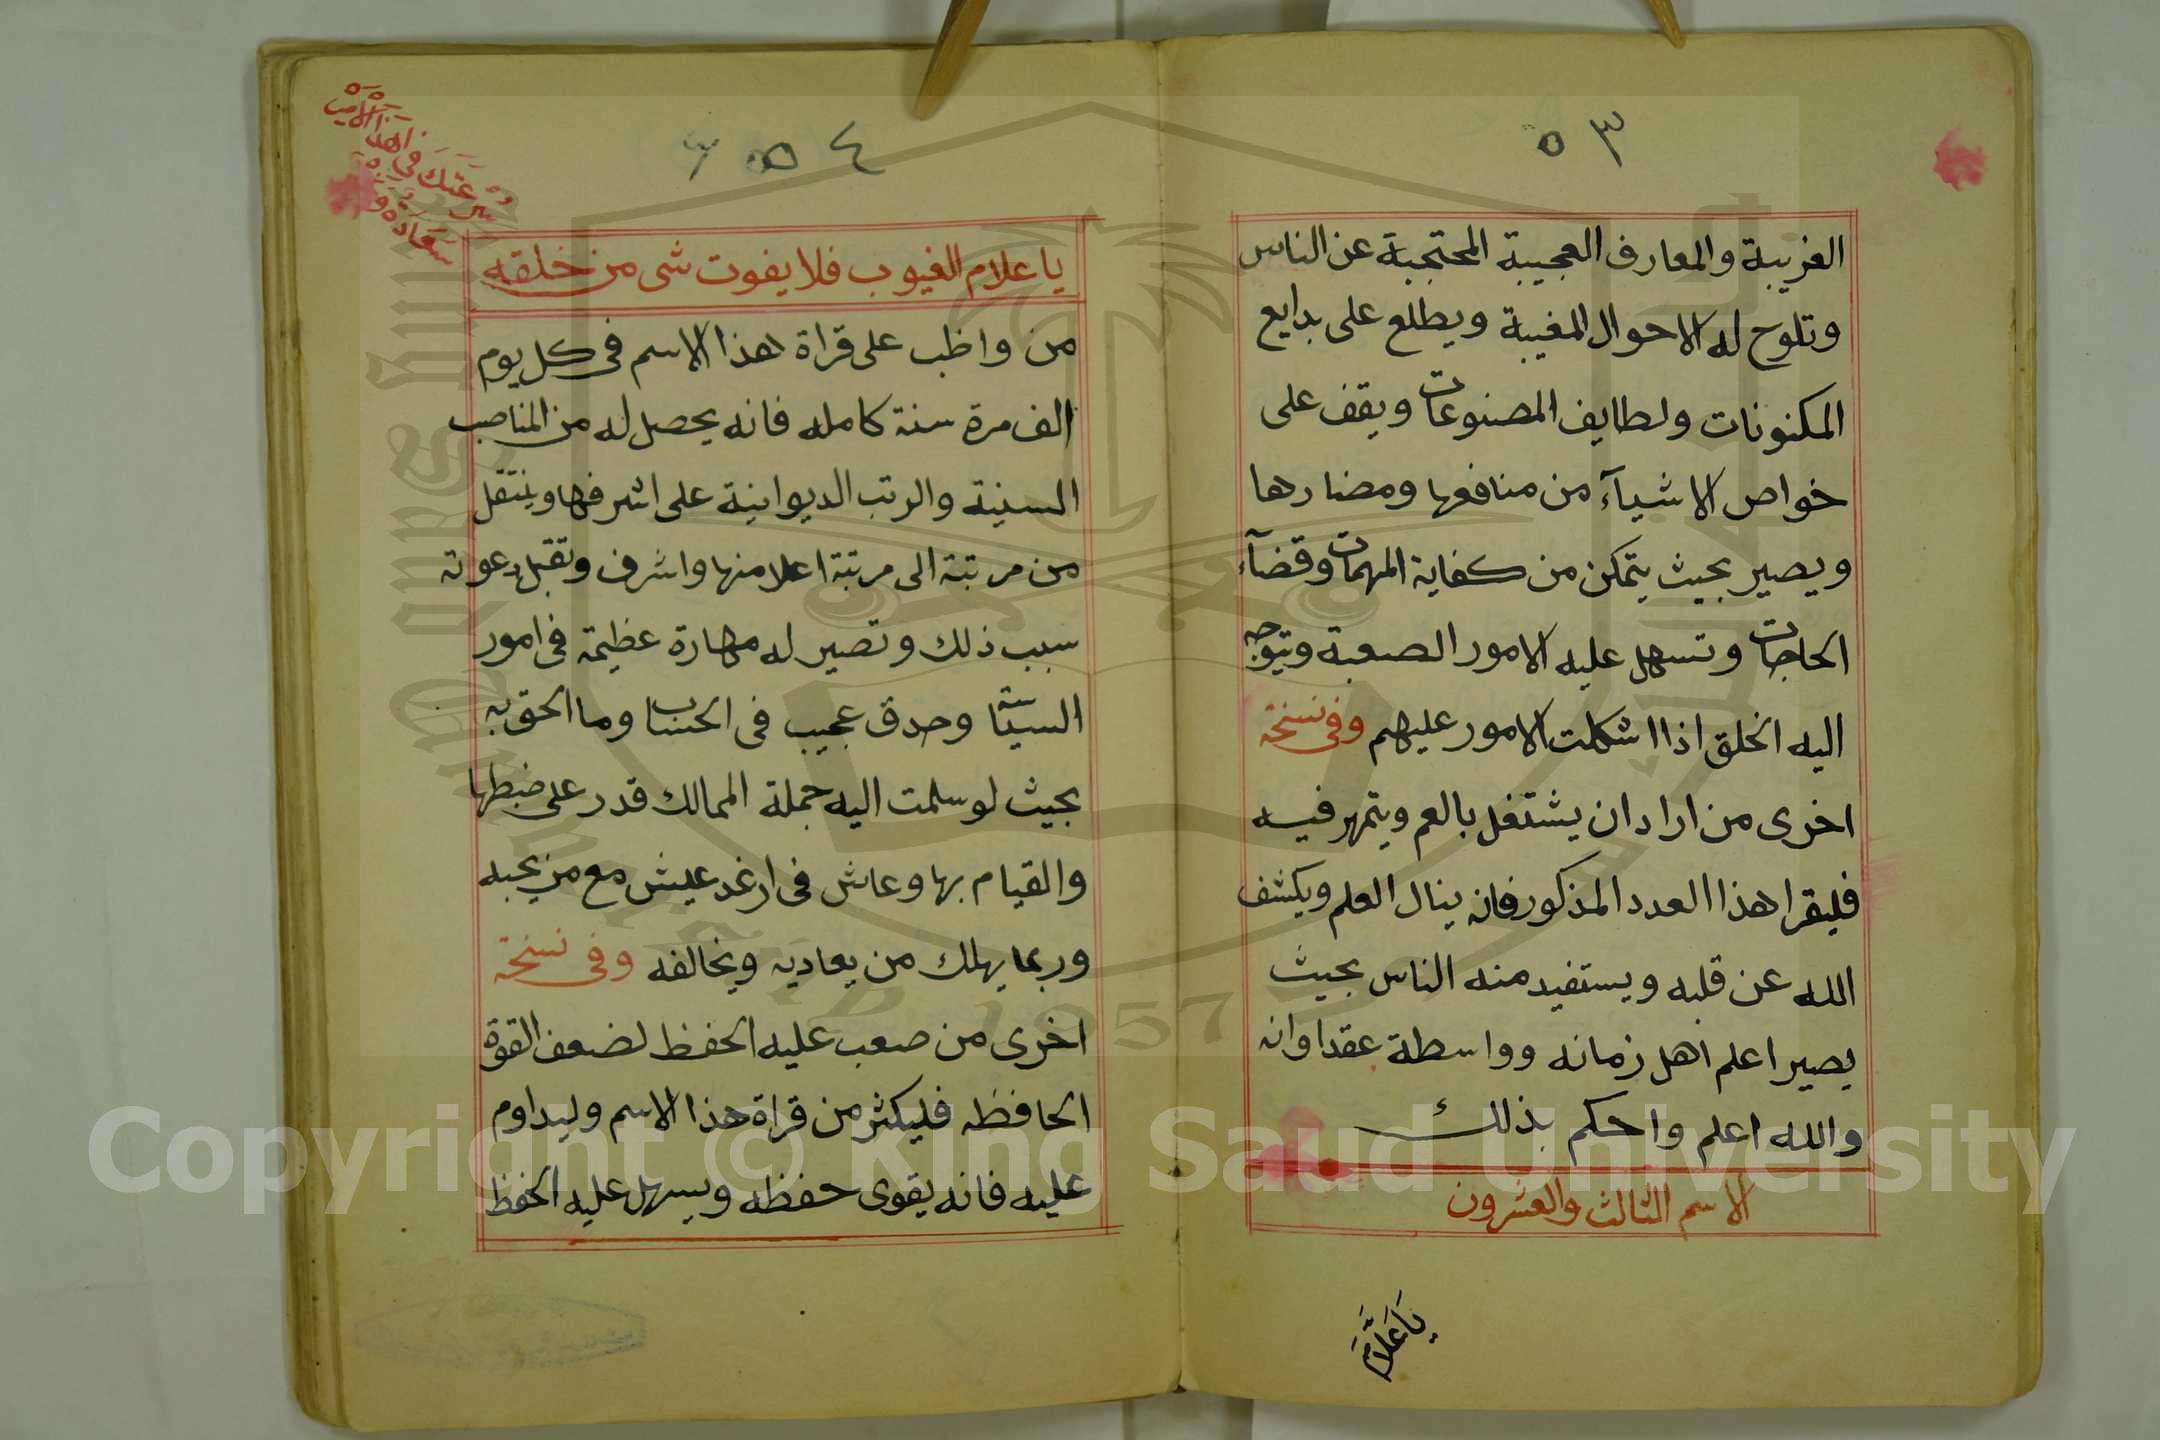 ٥٣
الغريبة والمعارف العجيبة المحتجبة عن الناس
وتلوح له الاحوال المغيبة ويطلع على بدايع
المكنونات ولطايف المصنوعات ويقف على
خواص الاشيآء من منافعها ومضارها
ويصير بحيث يتمكن من كفاية المهمات وقضآء
الحاجات وتسهل عليه الامور الصعبة ويتوجه
اليه الخلق اذا اشكلت الامور عليهم وفي نسخة
اخرى من اراد ان يشتغل بالعم ويتمهر فيه
فليقرا هذا العدد المذكور فانه ينال العلم ويكشف
الله عن قلبه ويستفيد منه الناس بحيث
يصير اعلم اهل زمانه وواسطة عقد اوانه
والله اعلم واحكم بذلك
الاسم الثالث والعشرون
يَاعَلَّامَ
٥٤
يا علام الغيوب فلا يفوت شى من خلقه
من واظب على قراة هذا الاسم فى كل يوم
الف مرة سنة كامله فانه يحصل له من المناصب
السنية والرتب الديوانية على اشرفها وينتقل
من مرتبة الى مرتبة اعلا منها واشرف وتقبل دعوته
سبب ذلك وتصير له مهارة عظيمة فى امور
وحدق عجيب فى الحساب وما الحق به
بحيث لو سلمت اليه جملة الممالك قدر على ضبطها
والقيام بها وعاش فى ارغد عيش مع من يحبه
وربما يهلك من يعاديه ويخالفه وفى نسخة
اخرى من صعب عليه الحفظ لضعف القوة
الحافظه فليكثر من قراة هذا الاسم وليداوم
عليه فانه يقوى حفظه ويسهل عليه الحفظ
Copyright © King Saud University
1957